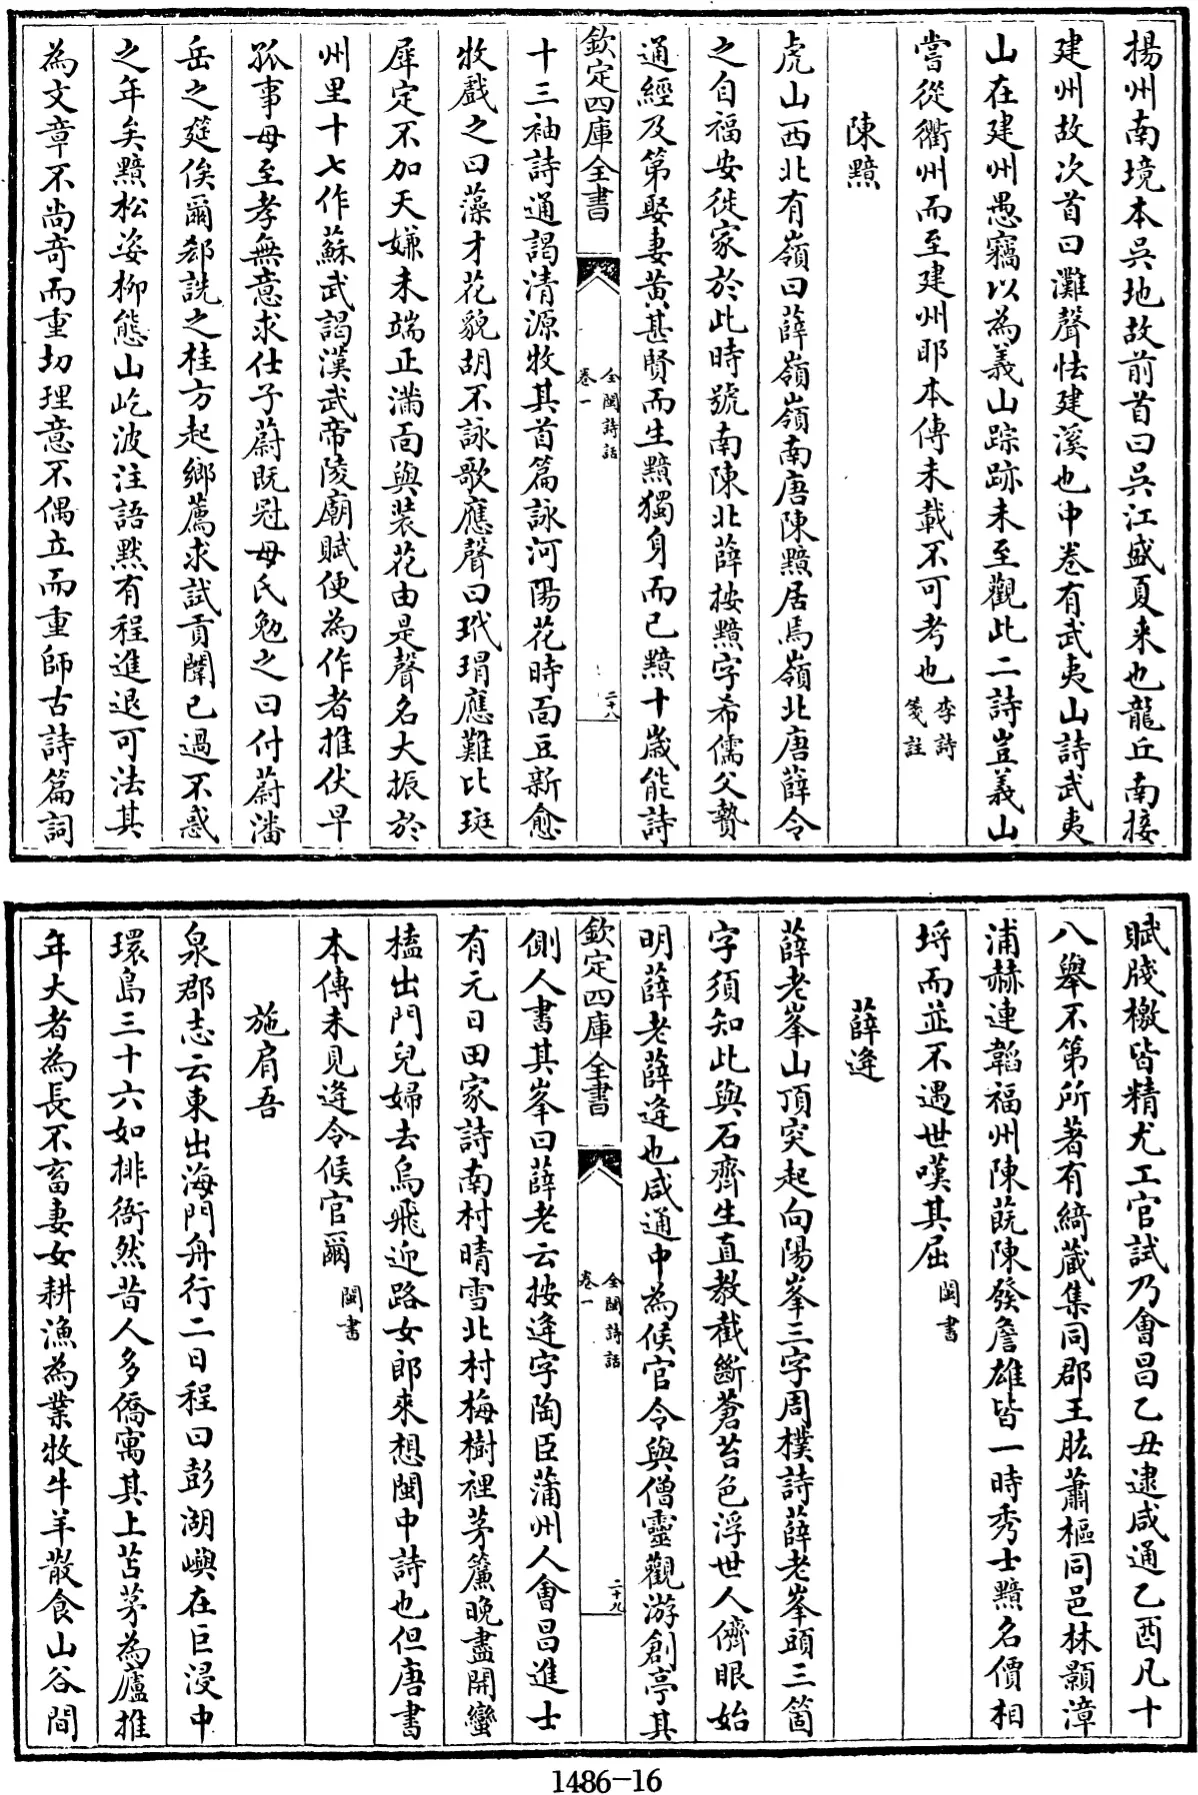 揚州南境本吳地故前首曰吳江盛夏来也龍丘南接
建州故次首曰灘聲怯建溪也中巻有武夷山詩武夷
山在建州愚竊以為義山踪跡未至觀此二詩豈義山
嘗從衢州而至建州耶本傳未載不可考也李詩箋註
陳黯
虎山西北有嶺曰薛嶺嶺南唐陳黯居焉嶺北唐薛令
之自福安徙家於此時號南陳北薛按黯字希儒父贄
通經及第娶妻黄甚賢而生黯獨身而已黯十歲能詩
欽定四庫全書
全閩詩話
卷一
二十八
十三袖詩通謁清源牧其首篇詠河陽花時面豆新愈
牧戲之曰藻才花貌胡不詠歌應聲曰玳瑁應難比斑
犀定不加天嫌未端正滿面與装花由是聲名大振於
州里十七作蘇武謁漢武帝陵廟賦便為作者推伏早
孤事母至孝無意求仕子蔚既冠母氏勉之曰付蔚潘
岳之筵俟爾郄詵之桂方起鄉薦求試貢闈已過不惑
之年矣黯松姿柳態山屹波注語黙有程進退可法其
為文章不尚竒而重切理意不偶立而重師古詩篇詞
賦牋檄皆精尤工官試乃會昌乙丑逮咸通乙酉凡十
八舉不第所著有綺藏集同郡王肱蕭樞同邑林顥漳
浦赫連韜福州陳蔇陳發詹雄皆一時秀士黯名價相
埒而並不遇世嘆其屈閩書
薛逢
薛老峯山頂突起向陽峯三字周樸詩薛老峯頭三箇
字須知此與石齊生直教截斷蒼苔色浮世人儕眼始
明薛老薛逢也咸通中為候官令與僧靈觀游創亭其
欽定四庫全書
全閩詩話
卷一
二十九
側人書其峯曰薛老云按逢字陶臣蒲州人會昌進士
有元日田家詩南村晴雪北村梅樹裡茅簾晚盡開蠻
榼出門兒婦去烏飛迎路女郎來想閩中詩也但唐書
本傳未見逢令候官爾閩書
施肩吾
泉郡志云東出海門舟行二日程曰彭湖嶼在巨浸中
環島三十六如排衙然昔人多僑寓其上苫茅為廬推
年大者為長不畜妻女耕漁為業牧牛羊散食山谷間
1486-16